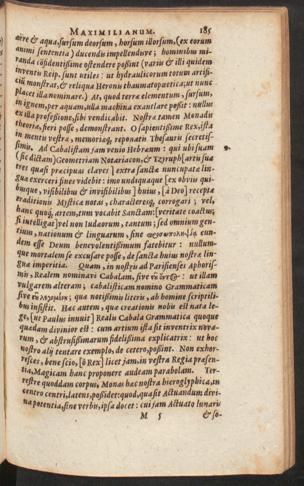 MAXIMILIANUM. 185
aëre & aqua, sursum deorsum, horsum illorsum, (ex eorum
animi sententia) ducendis impellendisve; hominibus mi-
randa cōfidentissime ostendere possint (variæ & illi quidem
inventu Reip. sunt utiles: ut hydraulicorum totum artifi-
ciū monstrat, & reliqua Heronis thaumatopoetica, ut nunc
placet illa nominare.) At, quod terra elementum, sursum,
in ignem, per aquam, ulla machina exantlare possit: nullus
ex illa professione, sibi vendicabit. Nostræ tamen Monadis
theoria, fieri posse, demonstrant. O sapientissime Rex, ista
in mentis vestræ, memoriaq, reponatis Thesauris secretis-
simis. Ad Cabalistam jam venio Hebræum: qui ubi suam
(sic dictam) Geometriam Notariacon, & Tzyruph (artis suæ
tres quasi præcipuas claves) extra sanctæ nuncupatæ lin-
guæ exerceri fines videbit: imo undequaque (ex obviis qui-
busque, visibilibus & invisibilibus) hujus, (à Deo) receptæ
traditionis Mysticæ notas, characteresq, corrogari; vel,
hanc quoq, artem, tum vocabit Sanctam: (veritate coactus,
si intelligat) vel non Iudæorum, tantum; sed omnium gen-
tium, nationum & linguarum, sine
dem esse Deum benevolentissimum fatebitur: nullum-
que mortalem se excusare posse, de sancta hujus nostra lin-
gua imperitia. Quam, in nostris ad Parisienses Aphoris-
mis, Realem nominavi Cabalam, sive : ut illam
vulgarem alteram; cabalisticam nomino Grammaticam
sive : qua notissimis literis, ab homine scriptili-
bus insistit. Hæc autem, quæ creationis nobis est nata le-
ge, (ut Paulus innuit) Realis Cabala Grammatica quoque
quædam divinior est: cum artium ista sit inventrix novæ-
rum, & abstrusissimarum fidelissima explicatrix: ut hoc
nostro alij tentare exemplo, de cetero, possint. Non exhor-
resces, bene scio, (ô Rex) licet jam, in vestra Regia præsen-
tia, Magicam hanc proponere audeam parabolam. Ter-
restre quoddam corpus, Monas hæc nostra hieroglyphica, in
centro centri, latens, possidet: quod, quasit Actuandum divi-
na potentia, sine verbis, ipsa docet: cui jam Actuato lunaris
M 5 & so-